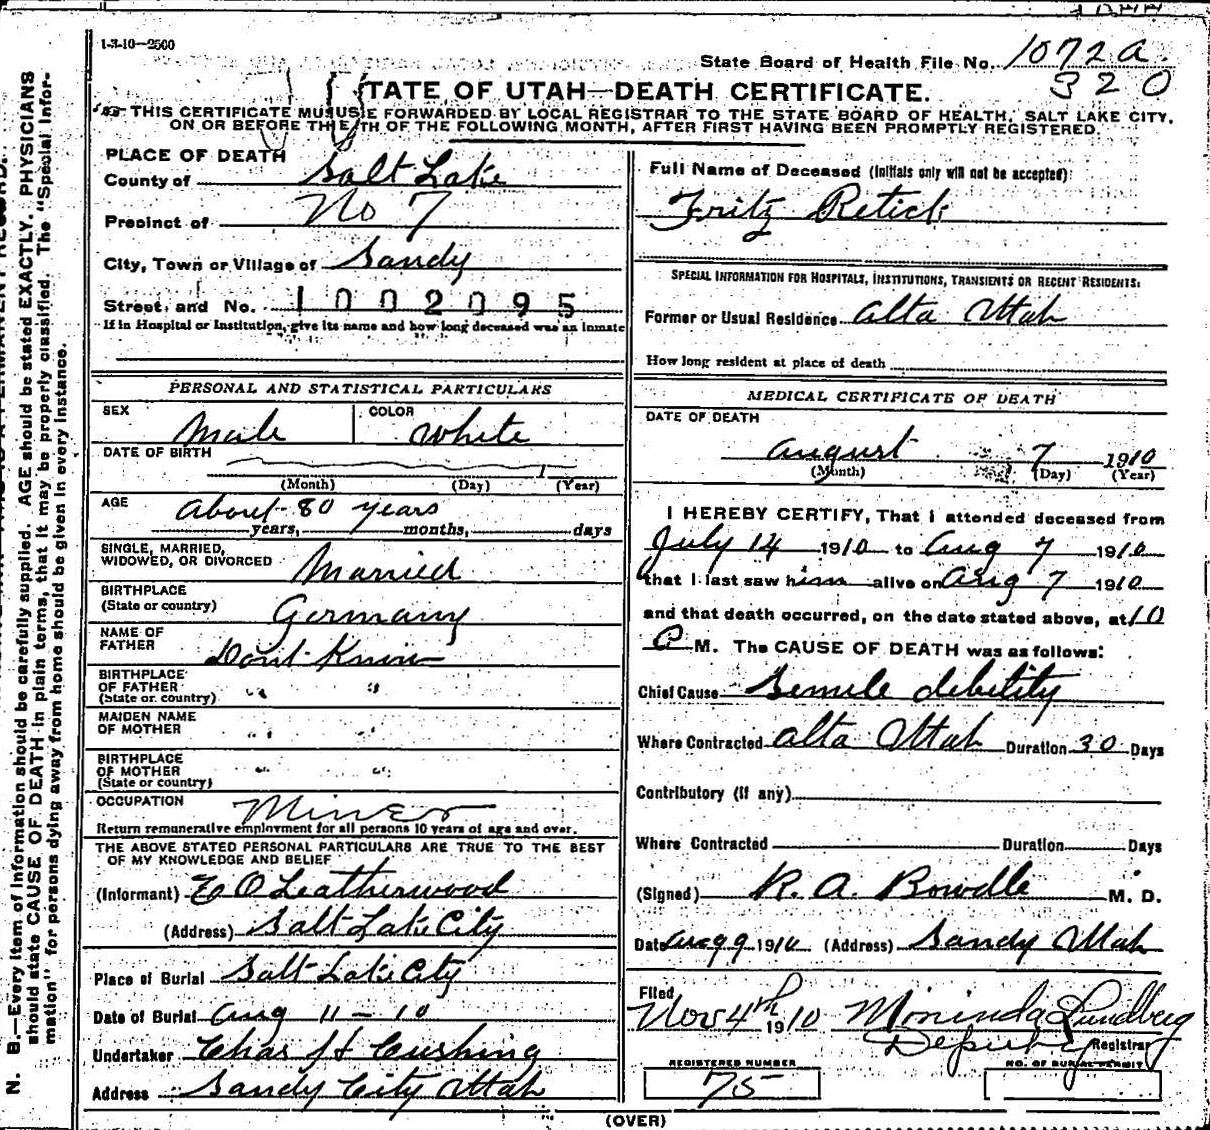 1-3-10—2500
State Board of Health File No. 1072a
320
STATE OF UTAH—DEATH CERTIFICATE.
THIS CERTIFICATE MUST BE FORWARDED BY LOCAL REGISTRAR TO THE STATE BOARD OF HEALTH, SALT LAKE CITY,
ON OR BEFORE THE TH OF THE FOLLOWING MONTH, AFTER FIRST HAVING BEEN PROMPTLY REGISTERED.
PLACE OF DEATH
County of Salt Lake
Precinct of No 7
City, Town or Village of Sandy
Street and No. 1002095
If in Hospital or Institution, give its name and how long deceased was an inmate
Full Name of Deceased (Initials only will not be accepted):
Fritz Retick
SPECIAL INFORMATION FOR HOSPITALS, INSTITUTIONS, TRANSIENTS OR RECENT RESIDENTS:
Former or Usual Residence Alta Utah
How long resident at place of death
PERSONAL AND STATISTICAL PARTICULARS
SEX Male COLOR White
DATE OF BIRTH
(Month) (Day) (Year)
AGE About 80 years
years, months, days
SINGLE, MARRIED,
WIDOWED, OR DIVORCED Married
BIRTHPLACE
(State or country) Germany
NAME OF
FATHER Dont Know
BIRTHPLACE
OF FATHER " "
(State or country)
MAIDEN NAME
OF MOTHER " "
BIRTHPLACE
OF MOTHER " "
(State or country)
OCCUPATION Miner
Return remunerative employment for all persons 10 years of age and over.
THE ABOVE STATED PERSONAL PARTICULARS ARE TRUE TO THE BEST
OF MY KNOWLEDGE AND BELIEF
(Informant) E O Leatherwood
(Address) Salt Lake City
Place of Burial Salt Lake City
Date of Burial Aug 11 - 10
Undertaker Chas H Cushing
Address Sandy City Utah
MEDICAL CERTIFICATE OF DEATH
DATE OF DEATH
August 7 1910
(Month) (Day) (Year)
I HEREBY CERTIFY, That I attended deceased from
July 14 1910 to Aug 7 1910
that I last saw him alive on Aug 7 1910
and that death occurred, on the date stated above, at 10
P M. The CAUSE OF DEATH was as follows:
Chief Cause Senile debility
Where Contracted Alta Utah Duration 30 Days
Contributory (if any)
Where Contracted Duration Days
(Signed) R. A. Bowdle M. D.
Date Aug 9 1910 (Address) Sandy Utah
Filed
Nov 4th 1910 Moninda Lundberg
Deputy Registrar
REGISTERED NUMBER
75
NO. OF BURIAL PERMIT
(OVER)
N. B.—Every item of information should be carefully supplied. AGE should be stated EXACTLY. PHYSICIANS
should state CAUSE OF DEATH in plain terms, that it may be properly classified. The "Special Infor-
mation" for persons dying away from home should be given in every instance.